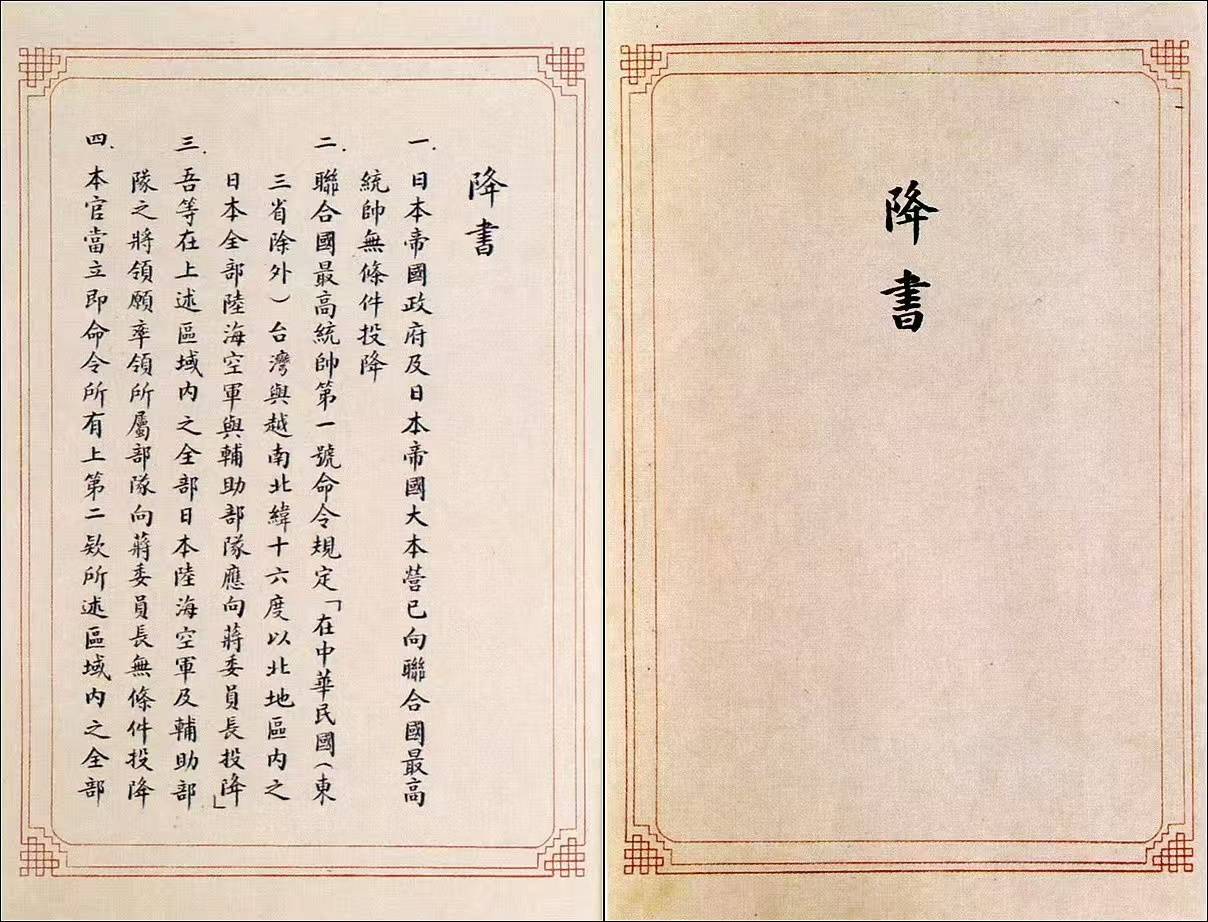 降書
降書
一.日本帝國政府及日本帝國大本營已向聯合國最高
統帥無條件投降
二.聯合國最高統帥第一號命令規定「在中華民國(東
三省除外)台灣與越南北緯十六度以北地區內之
日本全部陸海空軍與輔助部隊應向蔣委員長投降」
三.吾等在上述區域內之全部日本陸海空軍及輔助部
隊之將領願率領所屬部隊向蔣委員長無條件投降
四.本官當立即命令所有上第二款所述區域內之全部